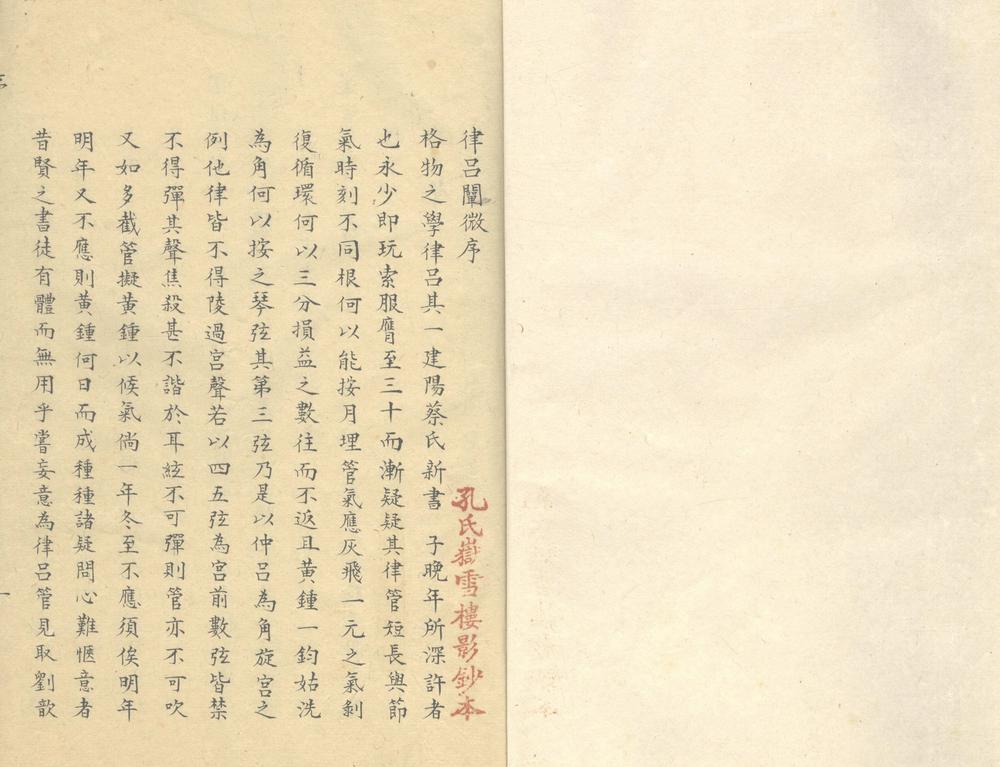 律呂闡微序
格物之學律呂其一建陽蔡氏新書 子晚年所深許者
也永少即玩索服膺至三十而漸疑疑其律管短長與節
氣時刻不同根何以能按月埋管氣應灰飛一元之氣剝
復循環何以三分損益之數往而不返且黃鍾一鈞姑洗
為角何以按之琴弦其第三弦乃是以仲呂為角旋宮之
例他律皆不得陵過宮聲若以四五弦為宮前數弦皆禁
不得彈其聲焦殺甚不諧於耳絃不可彈則管亦不可吹
又如多截管擬黃鍾以候氣倘一年冬至不應須俟明年
明年又不應則黃鍾何日而成種種諸疑問心難愜意者
昔賢之書徒有體而無用乎嘗妄意為律呂管見取劉歆
孔氏嶽雪樓影鈔本
一